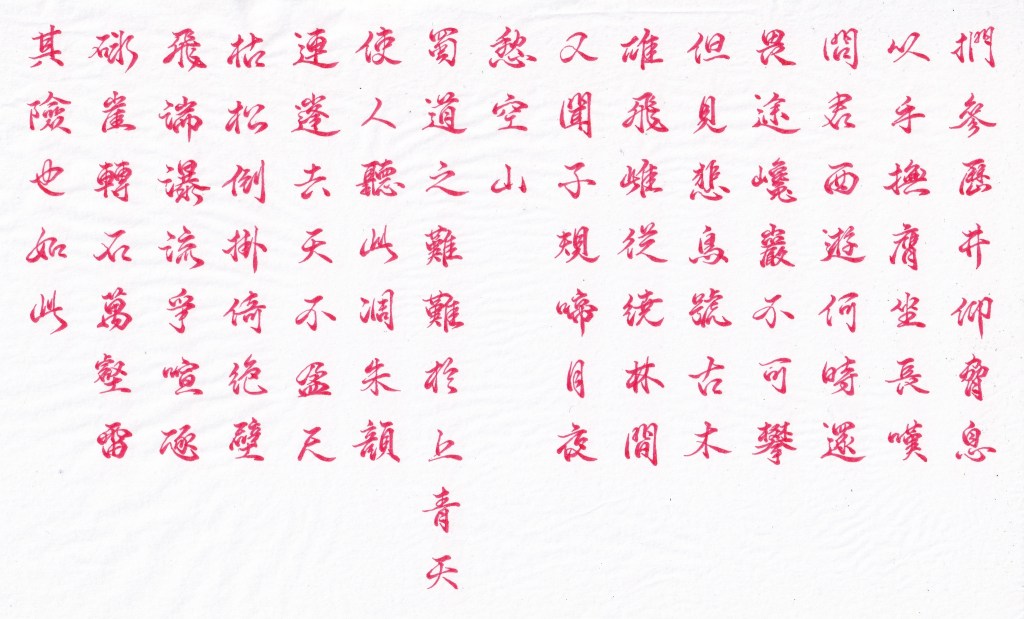 捫參歷井仰脅息
以手撫膺坐長嘆
問君西遊何時還
畏途巉巖不可攀
但見悲鳥號古木
雄飛雌從繞林間
又聞子規啼月夜
愁空山
蜀道之難難於上青天
使人聽此凋朱顏
連峯去天不盈尺
枯松倒掛倚絕壁
飛湍瀑流爭喧豗
砯崖轉石萬壑雷
其險也如此